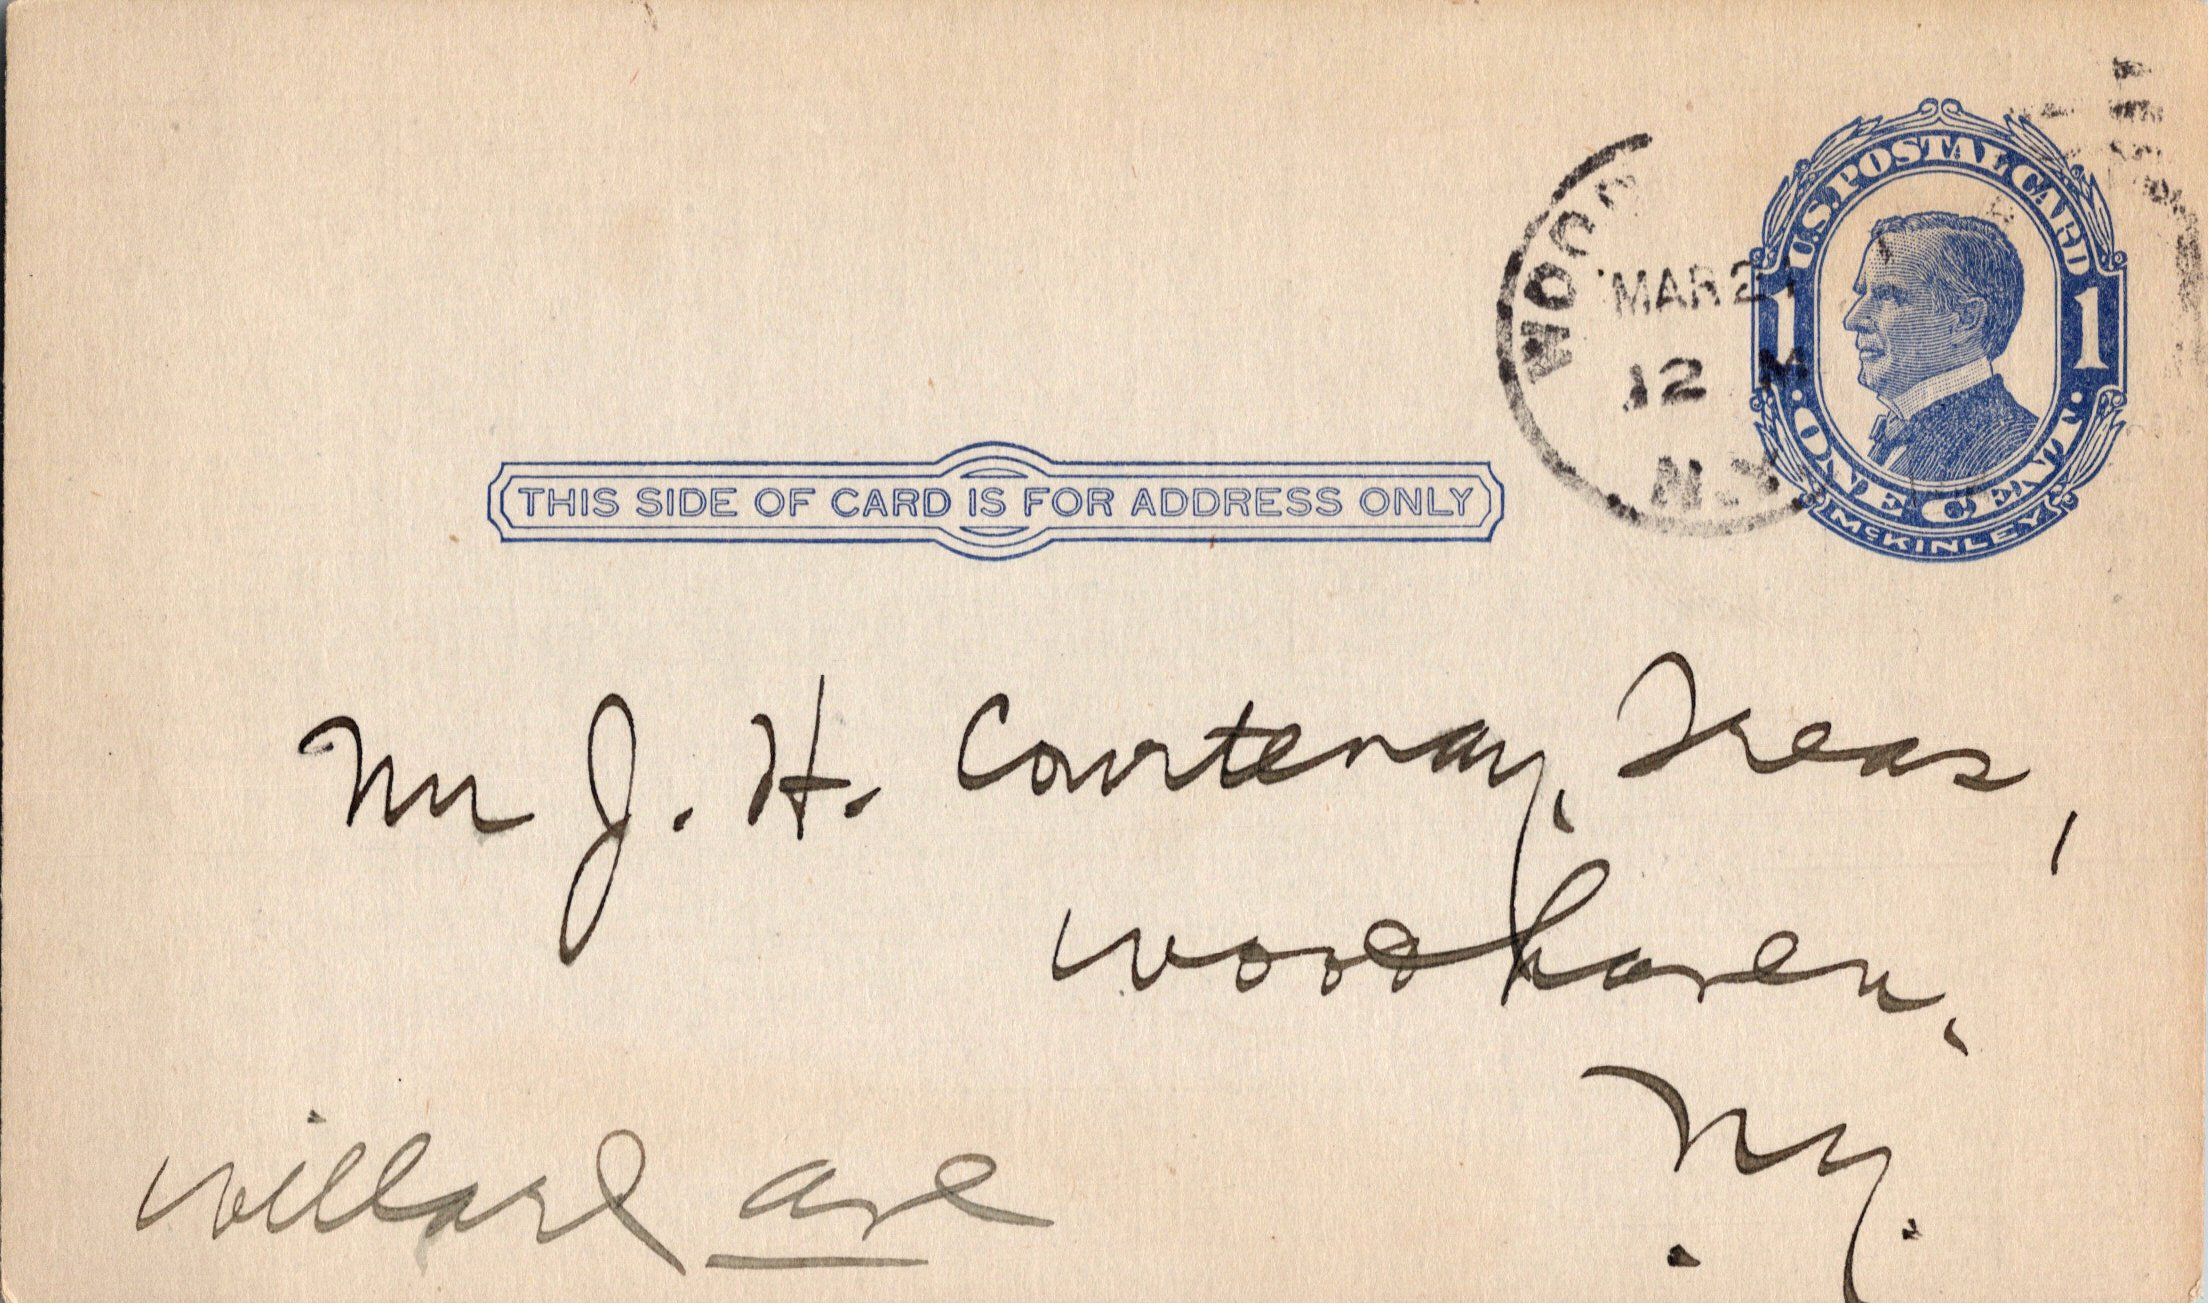 U.S. POSTAL CARD
1 1
· ONE CENT. ·
McKINLEY
MAR 2
12 M
N.Y.
THIS SIDE OF CARD IS FOR ADDRESS ONLY
Mr J. H. Courtenay, Treas,
Woodhaven,
N.Y.
Willard ave